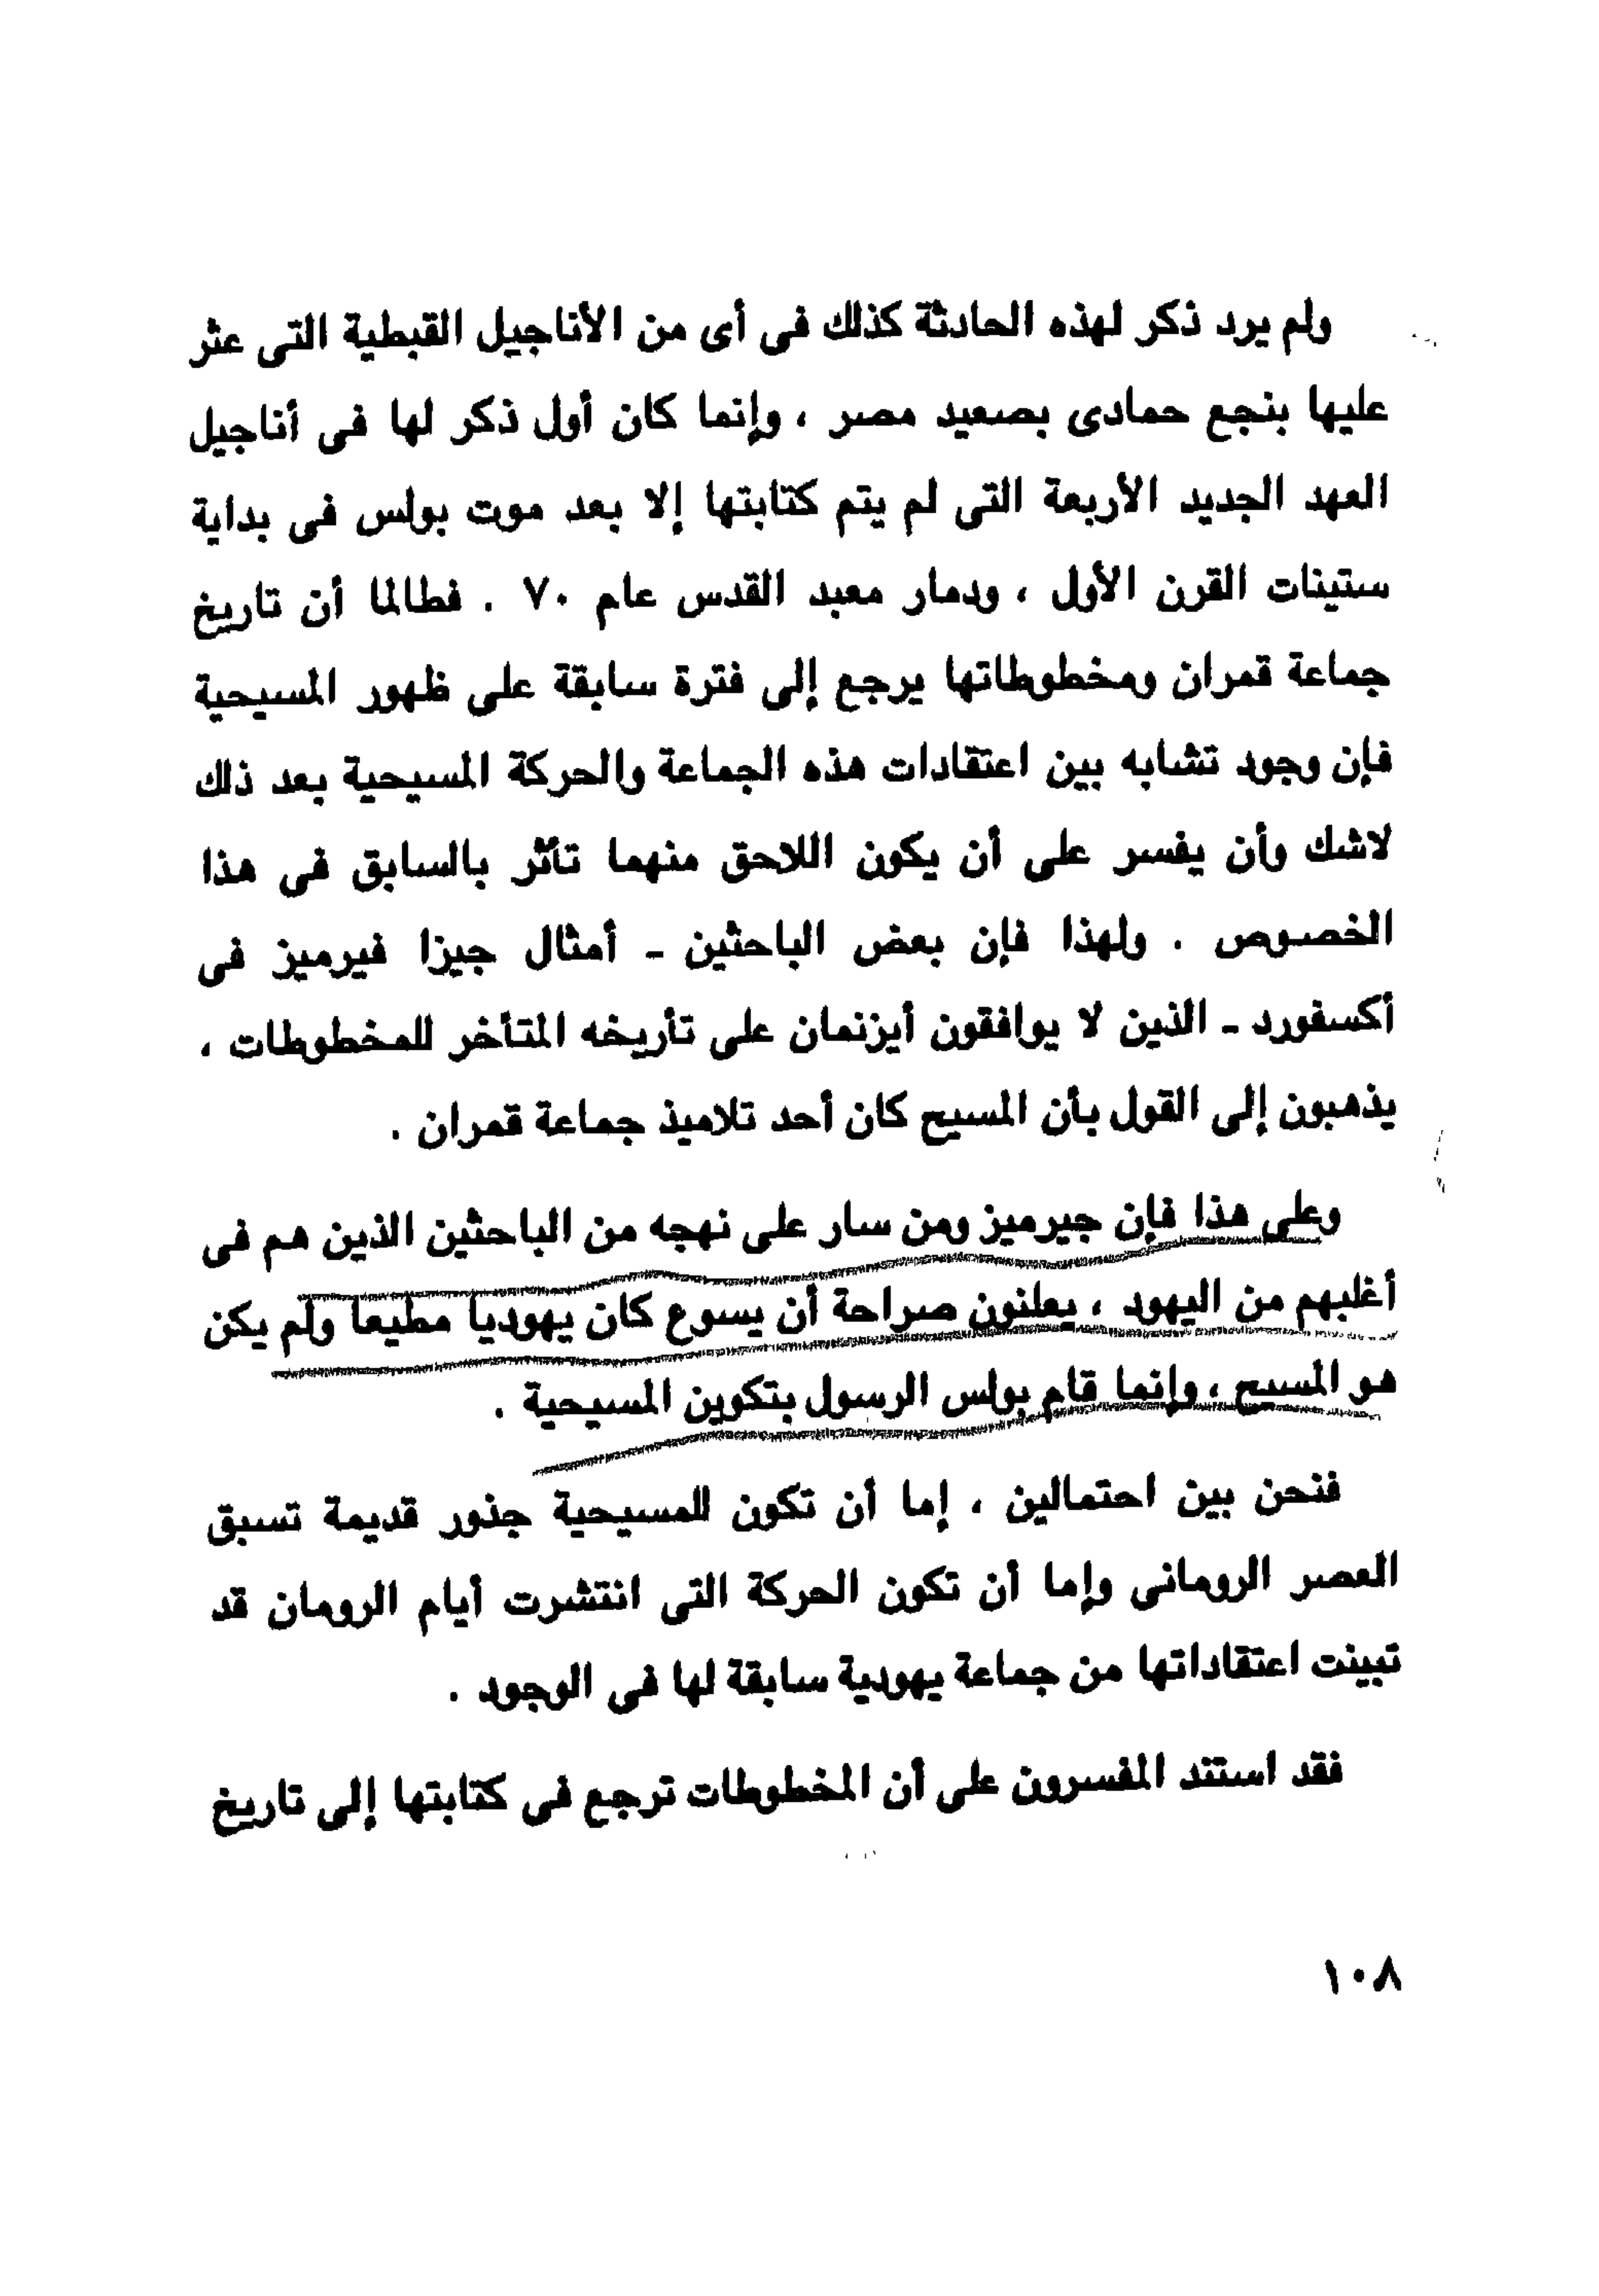 ولم يرد ذكر لهذه الحادثة كذلك فى أى من الأناجيل القبطية التى عثر
عليها بنجع حمادى بصعيد مصر ، وإنما كان أول ذكر لها فى أناجيل
العهد الجديد الأربعة التى لم يتم كتابتها إلا بعد موت بولس فى بداية
ستينات القرن الأول ، ودمار معبد القدس عام ٧٠ . فطالما أن تاريخ
جماعة قمران ومخطوطاتها يرجع إلى فترة سابقة على ظهور المسيحية
فإن وجود تشابه بين اعتقادات هذه الجماعة والحركة المسيحية بعد ذلك
لاشك وأن يفسر على أن يكون اللاحق منهما تأثر بالسابق فى هذا
الخصوص . ولهذا فإن بعض الباحثين ـ أمثال جيزا فيرميز فى
أكسفورد ـ الذين لا يوافقون أيزنمان على تأريخه المتأخر للمخطوطات ،
يذهبون إلى القول بأن المسيح كان أحد تلاميذ جماعة قمران .
وعلى هذا فإن جيرميز ومن سار على نهجه من الباحثين الذين هم فى
أغلبهم من اليهود ، يعلنون صراحة أن يسوع كان يهوديا مطيعا ولم يكن
هو المسيح ، وإنما قام بولس الرسول بتكوين المسيحية .
فنحن بين احتمالين ، إما أن تكون للمسيحية جذور قديمة تسبق
العصر الرومانى وإما أن تكون الحركة التى انتشرت أيام الرومان قد
تبينت اعتقاداتها من جماعة يهودية سابقة لها فى الوجود .
فقد استند المفسرون على أن المخطوطات ترجع فى كتابتها إلى تاريخ
١٠٨